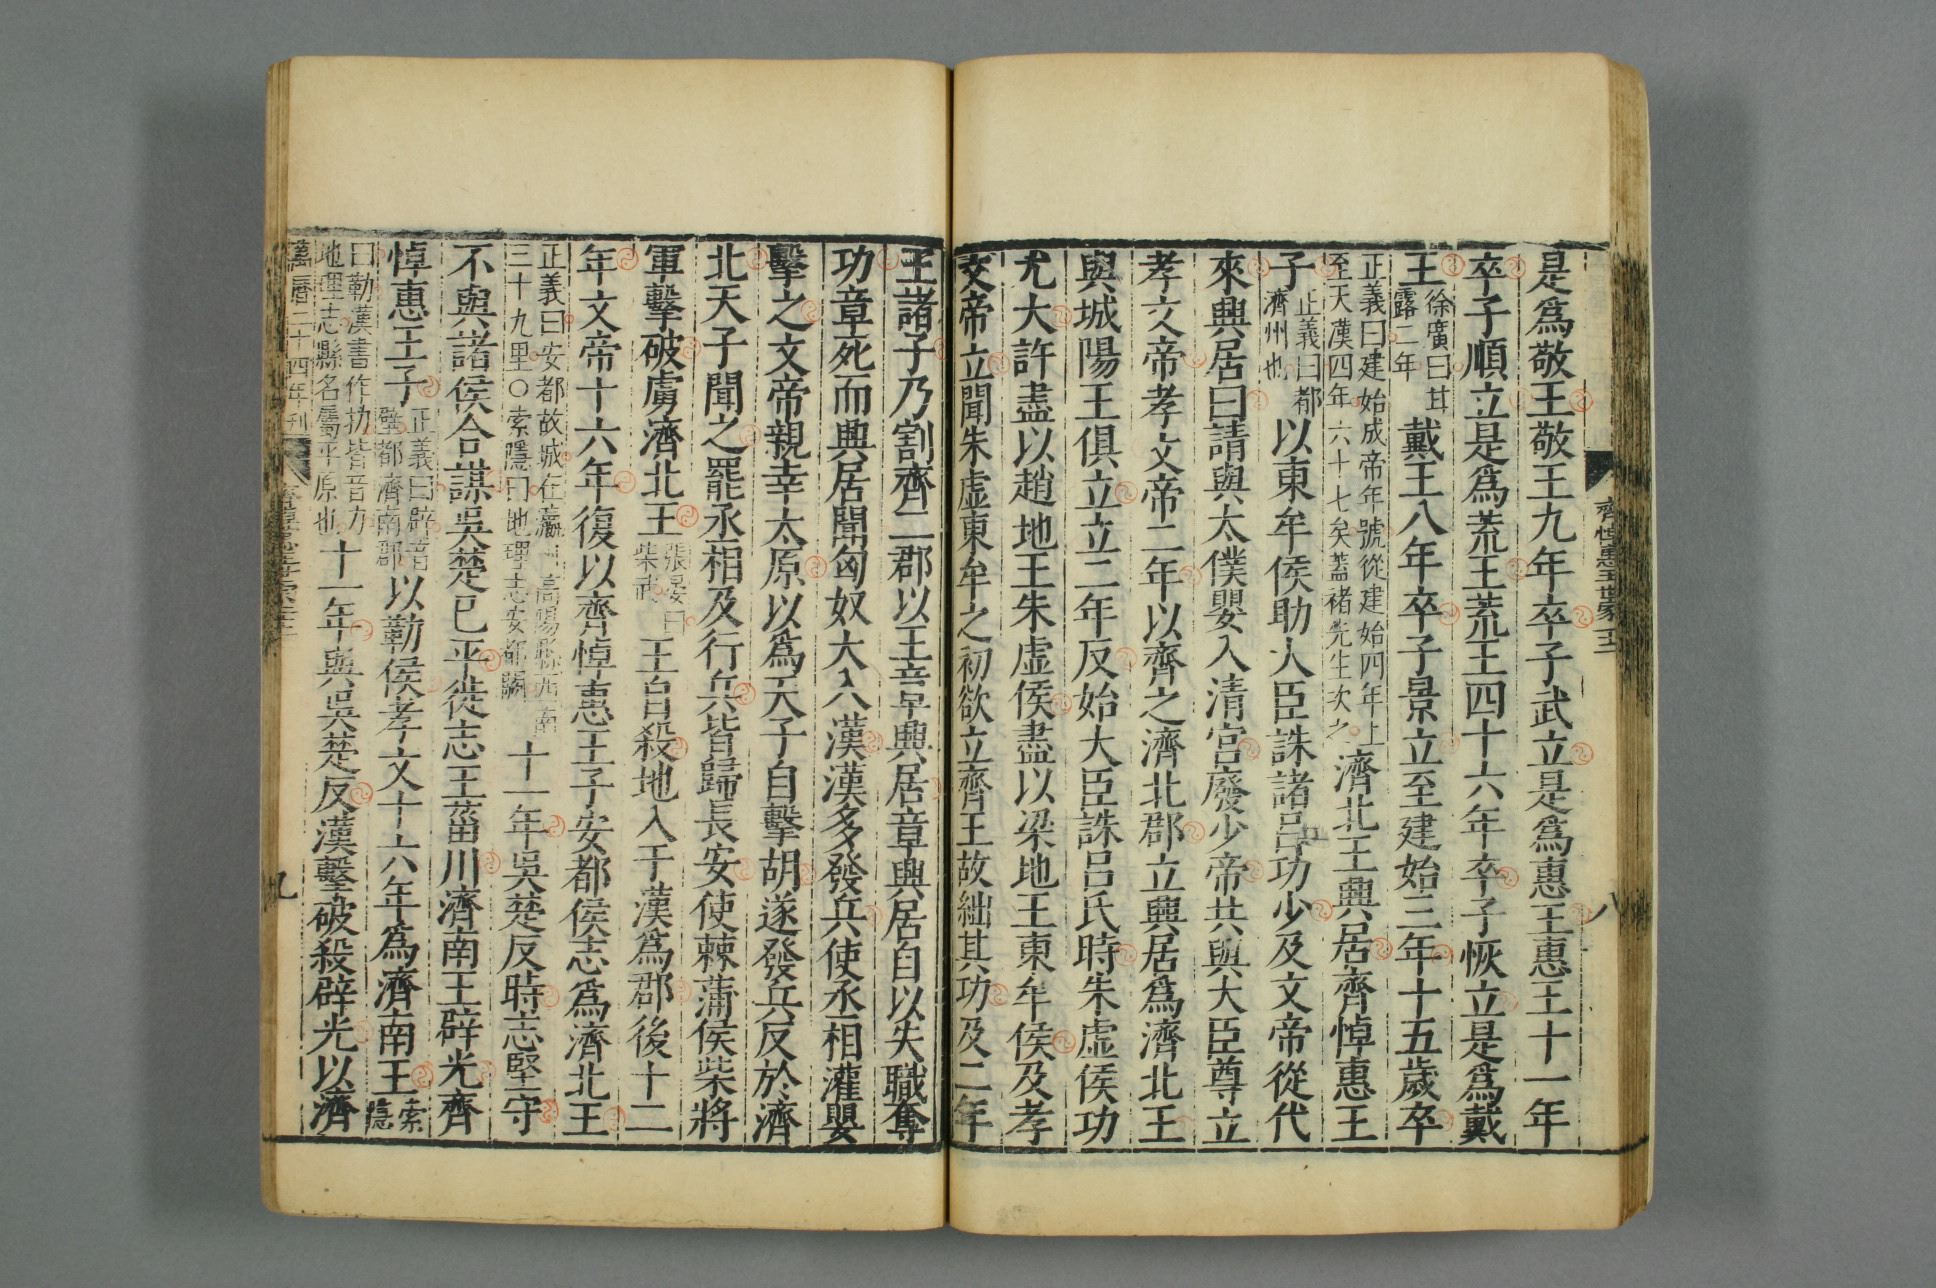 齊悼惠王世家二十二
八
是爲敬王敬王九年卒子武立是爲惠王惠王十一年
卒子順立是爲荒王荒王四十六年卒子恢立是爲戴
王徐廣曰甘露二年戴王八年卒子景立至建始三年十五歲卒
正義曰建始成帝年號從建始四年上至天漢四年六十七矣蓋褚先生次之濟北王興居齊悼惠王
子正義曰都濟州也以東牟侯助大臣誅諸呂功少及文帝從代
來興居曰請與太僕嬰入清宮廢少帝共與大臣尊立
孝文帝孝文帝二年以齊之濟北郡立興居爲濟北王
與城陽王俱立立二年反始大臣誅呂氏時朱虛侯功
尤大許盡以趙地王朱虛侯盡以梁地王東牟侯及孝
文帝立聞朱虛東牟之初欲立齊王故絀其功及二年
王諸子乃割齊二郡以王章興居章興居自以失職奪
功章死而興居聞匈奴大入漢漢多發兵使丞相灌嬰
擊之文帝親幸太原以爲天子自擊胡遂發兵反於濟
北天子聞之罷丞相及行兵皆歸長安使棘蒲侯柴將
軍擊破虜濟北王張晏曰柴武王自殺地入于漢爲郡後十二
年文帝十六年復以齊悼惠王子安都侯志爲濟北王
正義曰安都故城在瀛州高陽縣西南三十九里〇索隱曰地理志安都闕十一年吳楚反時志堅守
不與諸侯合謀吳楚已平徙志王菑川濟南王辟光齊
悼惠王子正義曰辟音壁都濟南郡以勒侯孝文十六年爲濟南王索隱
曰勒漢書作扐皆音力地理志縣名屬平原也十一年與吳楚反漢擊破殺辟光以濟
萬曆二十四年刊
九